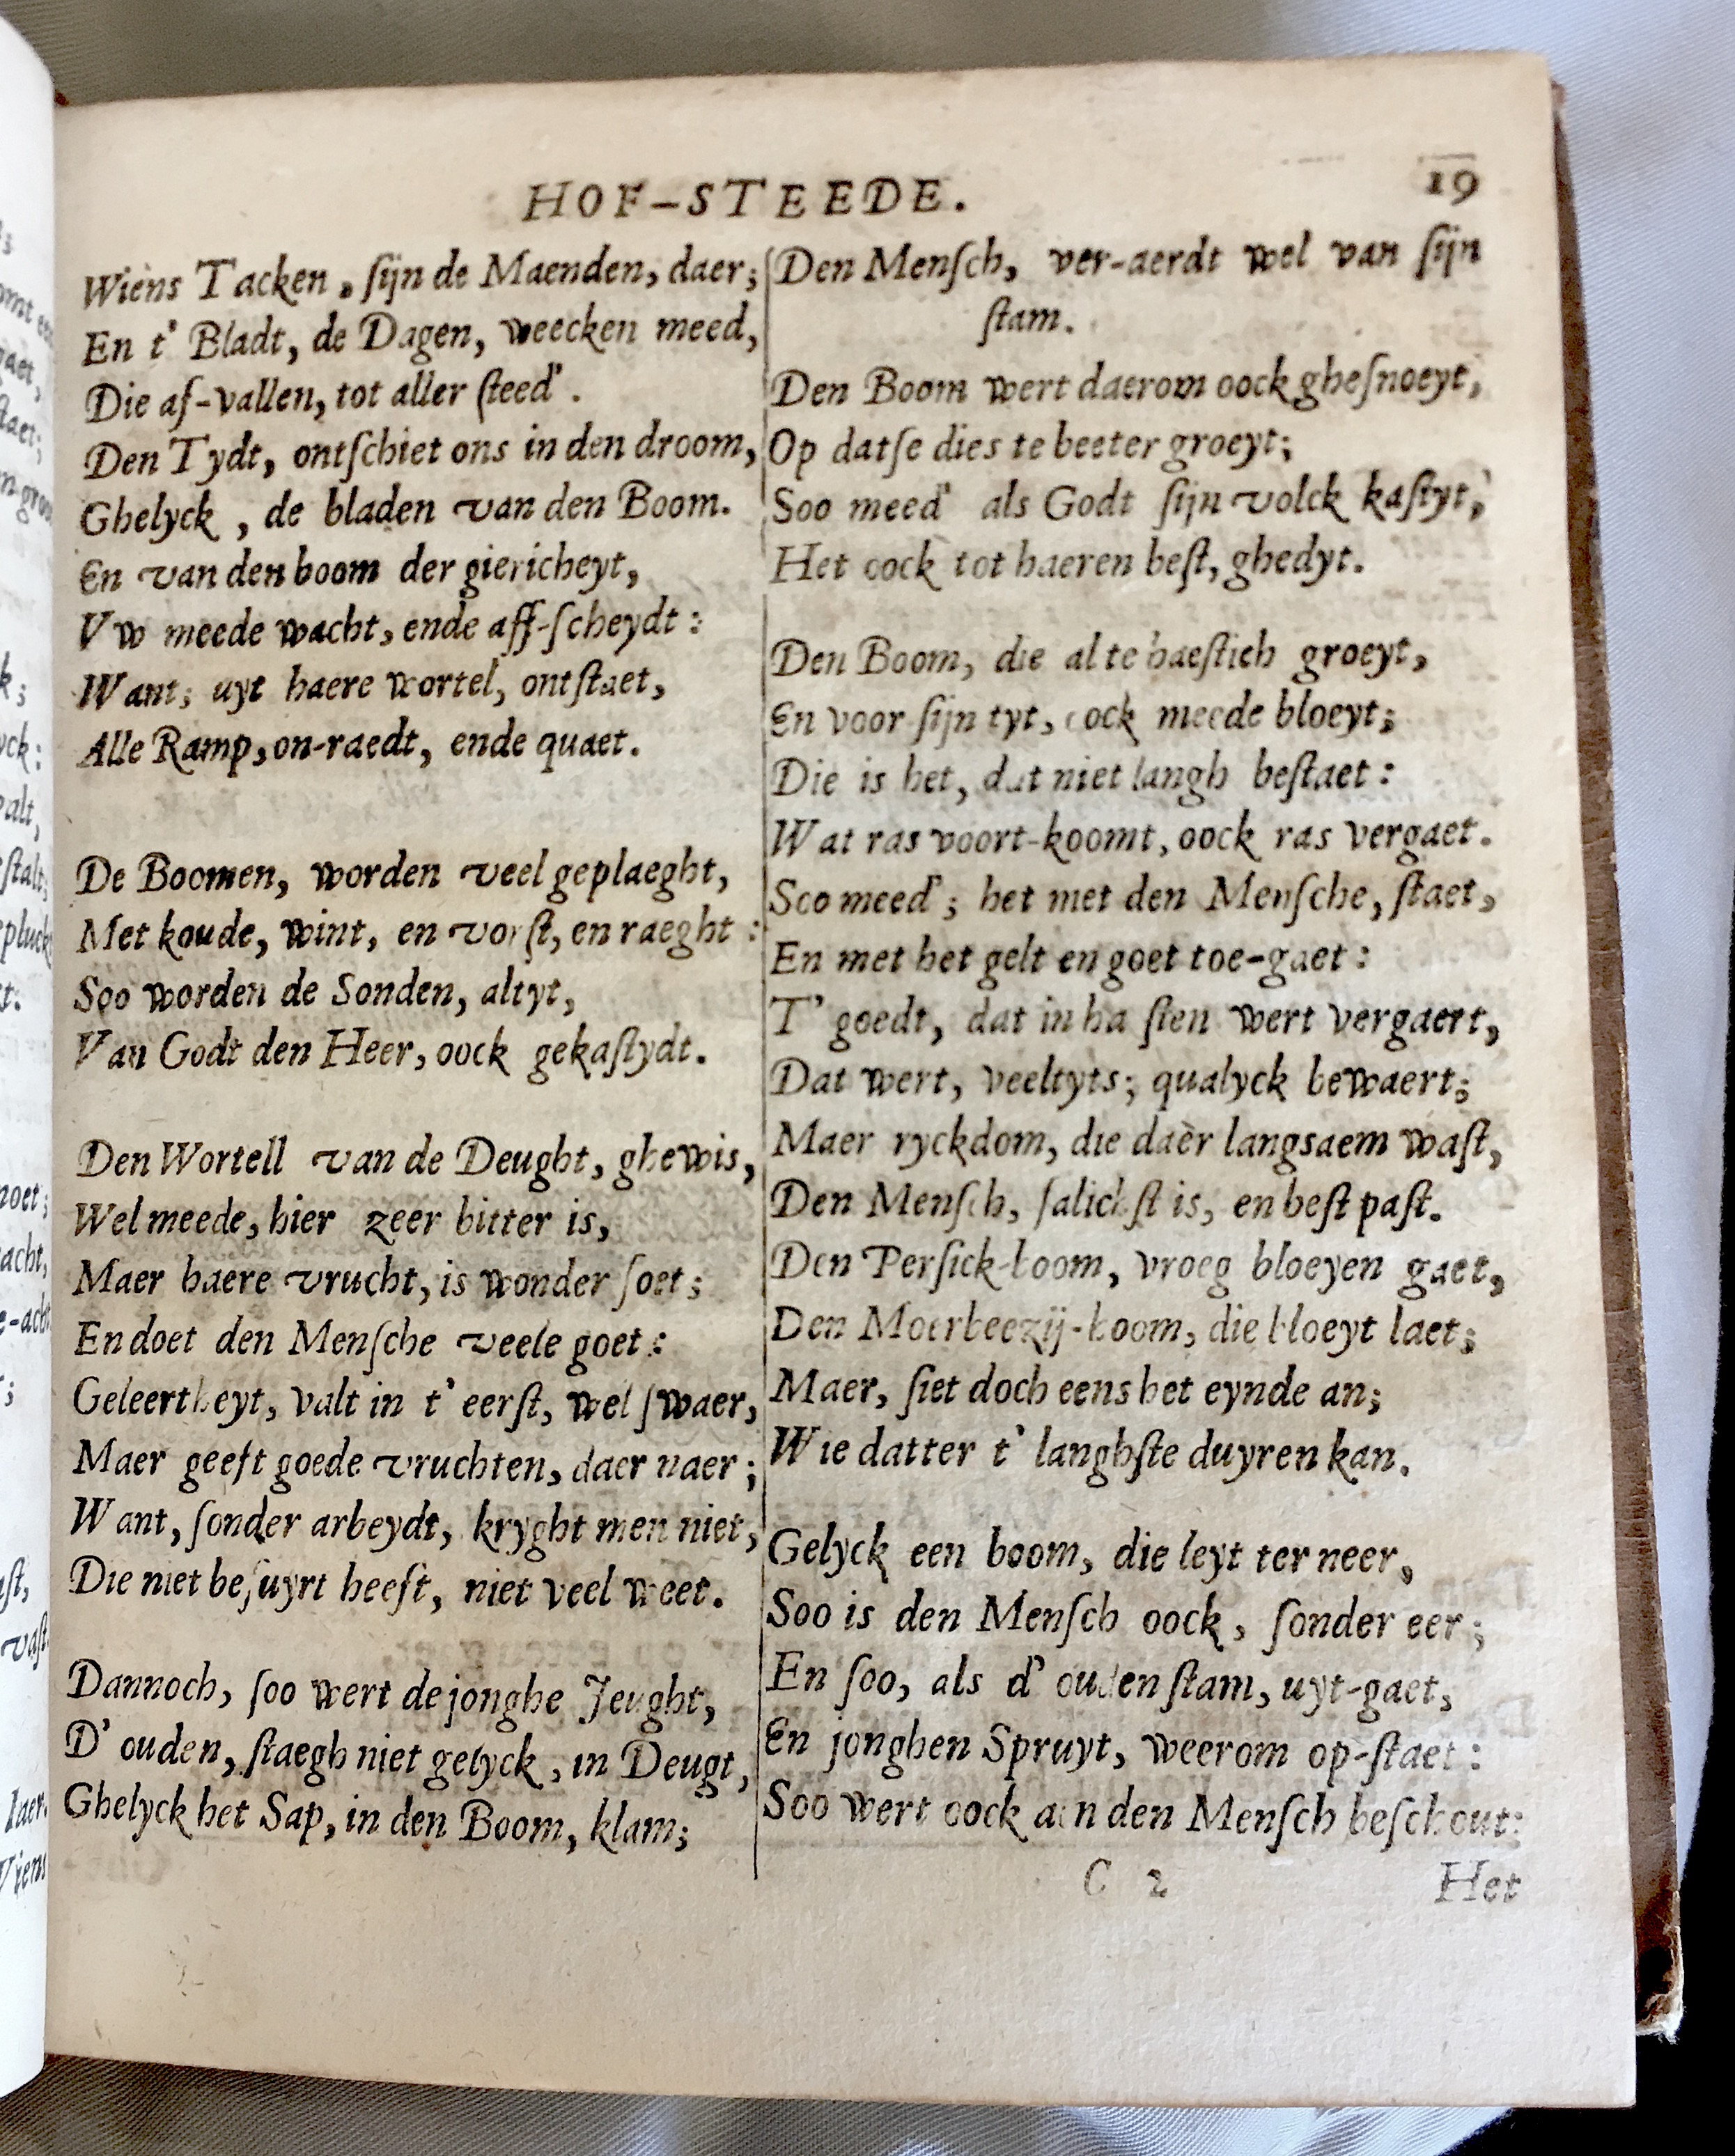 HOF-STEEDE.
19
Wiens Tacken, ſijn de Maenden, daer;
En t' Bladt, de Dagen, weecken meed,
Die af-vallen, tot aller ſteed'.
Den Tydt, ontſchiet ons in den droom,
Ghelyck, de bladen van den Boom.
En van den boom der giericheyt,
Vw meede wacht, ende aff-ſcheydt:
Want; uyt haere wortel, ontſtaet,
Alle Ramp, on-raedt, ende quaet.
De Boomen, worden veel geplaeght,
Met koude, wint, en vorſt, en raeght:
Soo worden de Sonden, altyt,
Van Godt den Heer, oock gekaſtydt.
Den Wortell van de Deught, ghewis,
Wel meede, hier zeer bitter is,
Maer haere vrucht, is wonder ſoet;
En doet den Menſche veele goet:
Geleertheyt, valt in t' eerſt, wel ſwaer,
Maer geeft goede vruchten, daer naer;
Want, ſonder arbeydt, kryght men niet,
Die niet beſuyrt heeft, niet veel weet.
Dannoch, ſoo wert de jonghe Jeught,
D' ouden, ſtaegh niet gelyck, in Deugt,
Ghelyck het Sap, in den Boom, klam;
Den Menſch, ver-aerdt wel van ſijn
ſtam.
Den Boom wert daerom oock gheſnoeyt,
Op datſe dies te beeter groeyt;
Soo meed' als Godt ſijn volck kaſtyt,
Het oock tot haeren beſt, ghedyt.
Den Boom, die al te haeſtich groeyt,
En voor ſijn tyt, oock meede bloeyt;
Die is het, dat niet langh beſtaet:
Wat ras voort-koomt, oock ras vergaet.
Soo meed'; het met den Menſche, ſtaet,
En met het gelt en goet toe-gaet:
T' goedt, dat in haſten wert vergaert,
Dat wert, veeltyts; qualyck bewaert;
Maer ryckdom, die daèr langsaem waſt,
Den Menſch, ſalichſt is, en beſt paſt.
Den Perſick-boom, vroeg bloeyen gaet,
Den Moerbeezij-boom, die bloeyt laet;
Maer, ſiet doch eens het eynde an;
Wie datter t' langhſte duyren kan.
Gelyck een boom, die leyt ter neer,
Soo is den Menſch oock, ſonder eer;
En ſoo, als d' ouden ſtam, uyt-gaet,
En jonghen Spruyt, weerom op-ſtaet:
Soo wert oock aen den Menſch beſchout:
C 2
Het